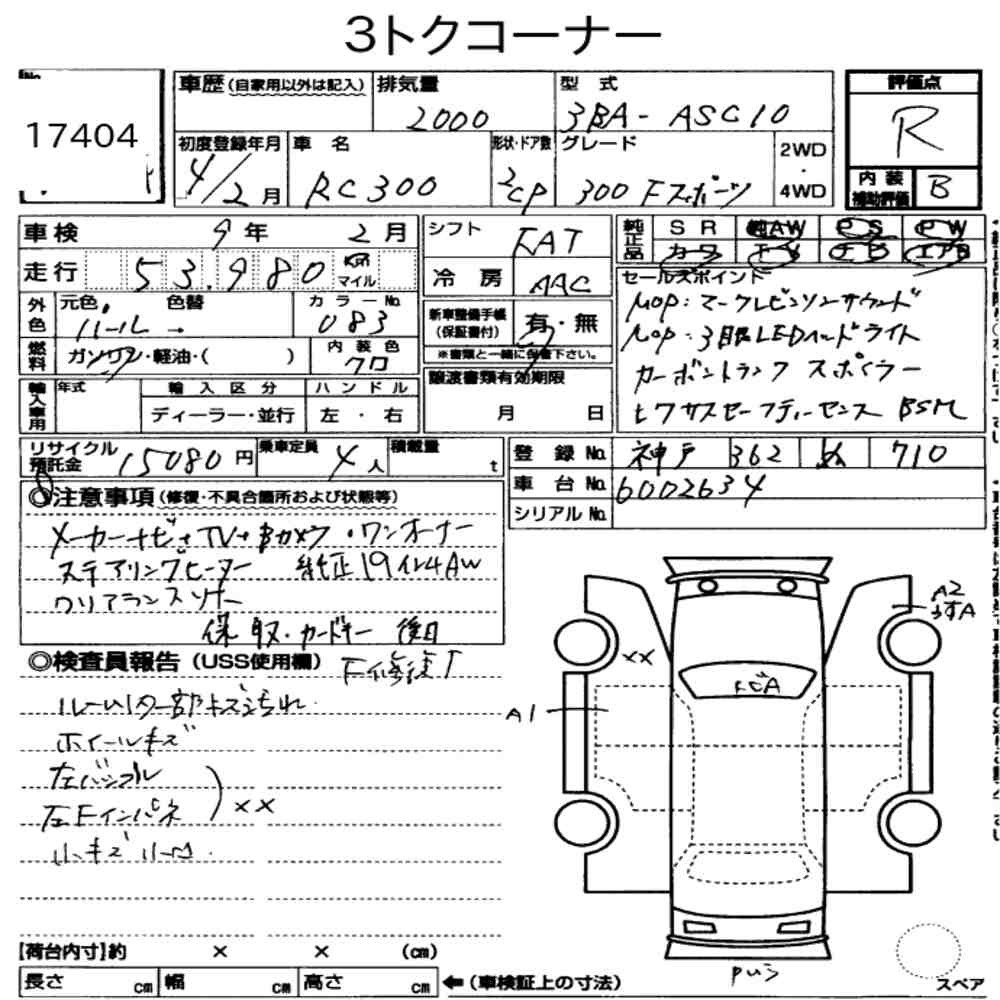 3トクコーナー
No.
17404
車歴(自家用以外は記入) 排気量 2000 型式 3BA-ASC10
評価点 R
初度登録年月 4/2月 車名 RC300 形状・ドア数 2CP グレード 300 Fスポーツ 2WD・4WD
内装補助評価 B
車検 9年 2月
走行 53,980 km マイル
外色 元色 パール 色替 → カラーNo. 083
燃料 ガソリン・軽油・( ) 内装色 クロ
輸入車用 年式 輸入区分 ハンドル
ディーラー・並行 左・右
シフト FAT
冷房 AAC
新車整備手帳(保証書付) 有・無
※書類と一緒に保管下さい。
譲渡書類有効期限
月 日
純正品 SR 純AW PS PW
カワ TV ナビ エアB
セールスポイント
MOP:マークレビンソンサウンド
MOP:3眼LEDヘッドライト
カーボントランク スポイラー
レクサスセーフティーセンス BSM
リサイクル預託金 15080円 乗車定員 4人 積載量 t
登録No. 神戸 362 ぬ 710
車台No. 6002634
シリアルNo.
◎注意事項(修復・不具合箇所および状態等)
メーカーナビ+TV+Bカメラ・ワンオーナー
ステアリングヒーター 純正19インチAW
クリアランスソナー
保 取・カードキー 後日
◎検査員報告(USS使用欄)
ルーム内一部キズ汚れ
ホイールキズ
左Fインパネ
小キズ 小凹
XX
XX
A1
A2
トビA
【荷台内寸】約 × × (cm)
長さ cm 幅 cm 高さ cm ←(車検証上の寸法)
スペア